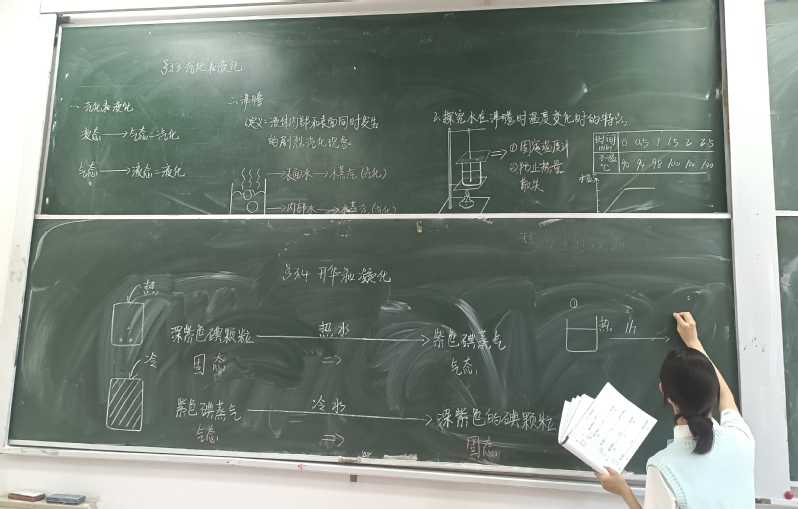 §3.3 汽化和液化
一、汽化和液化
液态 → 气态：汽化
气态 → 液态：液化
二、沸腾
定义：液体内部和表面同时发生
的剧烈汽化现象。
→表面水→水蒸汽 (汽化)
→内部水→水蒸汽 (汽化)
2.探究水在沸腾时温度变化时的特点。
⇒ ①固定温度计
②防止热量
散失
时间 min 0 0.5 1 1.5 2 2.5
水温 ℃ 90 94 98 100 100 100
水温
§3.4 升华和凝化
热
深紫色碘颗粒 热水 → 紫色碘蒸气
固态 ⇒ 气态
冷
紫色碘蒸气 冷水 → 深紫色的碘颗粒
气态 ⇒ 固态
①